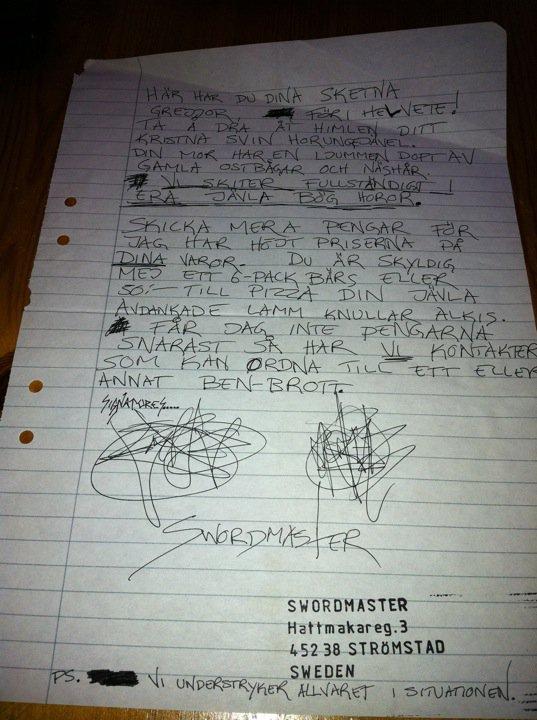 HÄR HAR DU DINA SKETNA
GREJJOR. FÖR I HELVETE!
TA Å DRA ÅT HIMLEN DITT
KRISTNA SVIN HORUNGEDJÄVEL.
DIN MOR HAR EN LJUMMEN DOFT AV
GAMLA OSTBÅGAR OCH NÄSHÅR.
VI SKITER FULLSTÄNDIGT I
ERA JÄVLA BÖG HOROR.
SKICKA MERA PENGAR FÖR
JAG HAR HÖJT PRISERNA PÅ
DINA VAROR. DU ÄR SKYLDIG
MEJ ETT 6-PACK BÄRS ELLER
50:- TILL PIZZA DIN JÄVLA
AVDANKADE LAMM KNULLAR ALKIS.
FÅR JAG INTE PENGARNA
SNARAST SÅ HAR VI KONTAKTER
SOM KAN ORDNA TILL ETT ELLER
ANNAT BEN-BROTT.
SIGNATURES....
SWORDMÄSTER
SWORDMASTER
Hattmakareg.3
452 38 STRÖMSTAD
SWEDEN
PS. VI UNDERSTRYKER ALLVARET I SITUATIONEN.